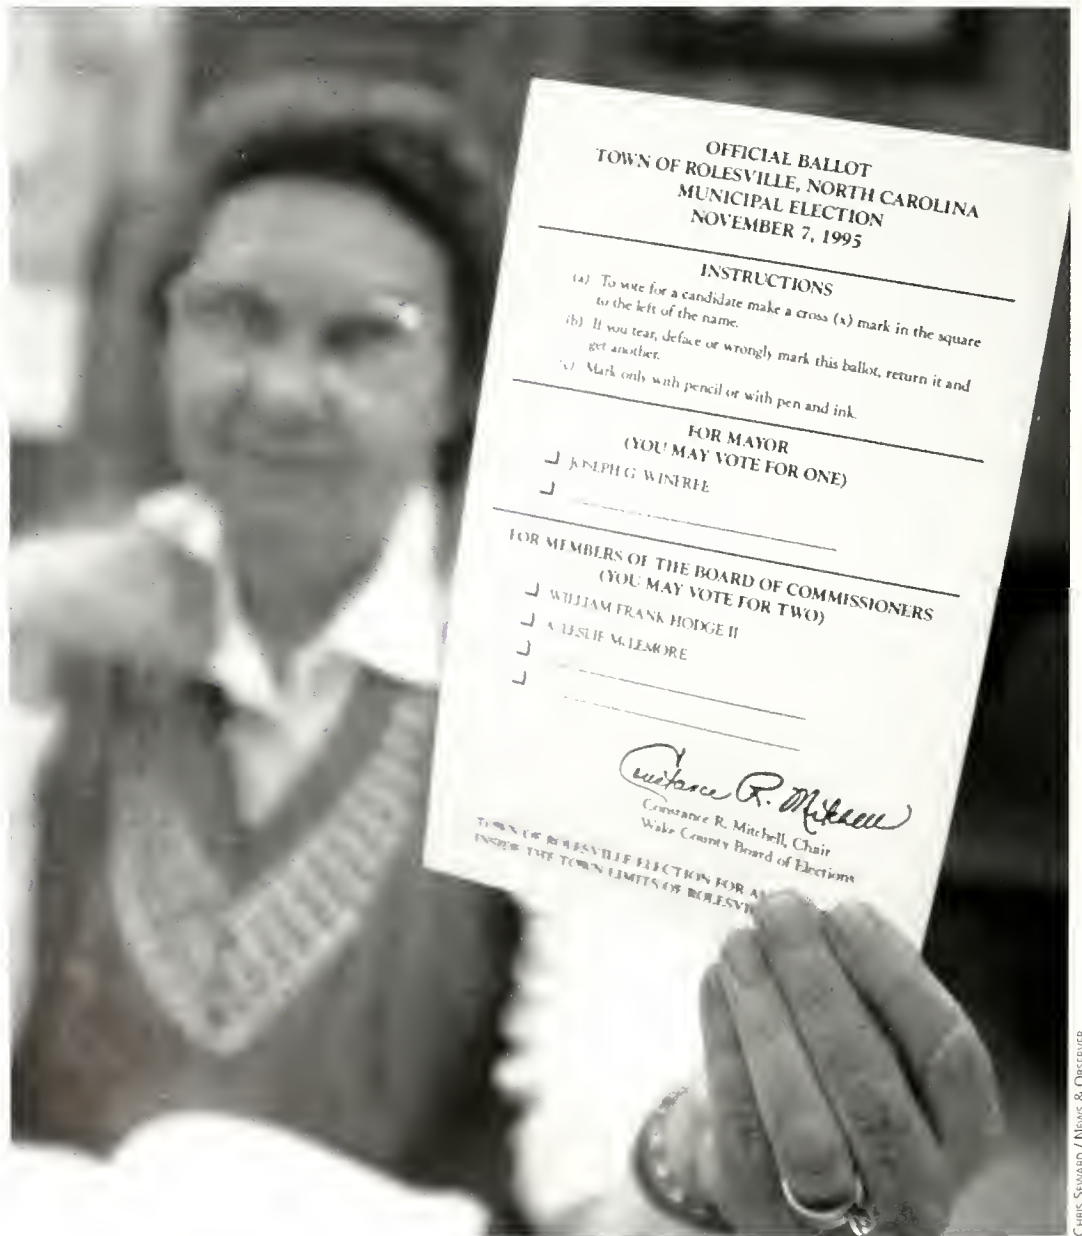 OFFICIAL BALLOT
TOWN OF ROLESVILLE, NORTH CAROLINA
MUNICIPAL ELECTION
NOVEMBER 7, 1995
INSTRUCTIONS
(a) To vote for a candidate make a cross (x) mark in the square
to the left of the name.
(b) If you tear, deface or wrongly mark this ballot, return it and
get another.
(c) Mark only with pencil or with pen and ink.
FOR MAYOR
(YOU MAY VOTE FOR ONE)
JOSEPH G. WINFREE
FOR MEMBERS OF THE BOARD OF COMMISSIONERS
(YOU MAY VOTE FOR TWO)
WILLIAM FRANK HODGE II
A. LESLIE McLEMORE
Constance R. Mitchell
Constance R. Mitchell, Chair
Wake County Board of Elections
TOWN OF ROLESVILLE ELECTION FOR
INSIDE THE TOWN LIMITS OF
CHRIS SEWARD / NEWS & OBSERVER